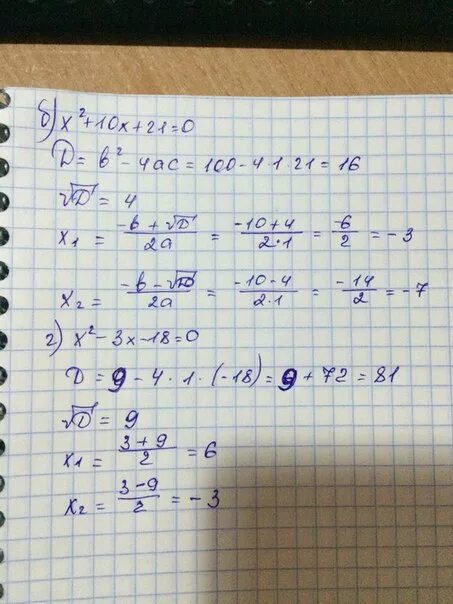 б) x² + 10x + 21 = 0
D = b² - 4ac = 100 - 4 · 1 · 21 = 16
√D = 4
x₁ = (-b + √D)/(2a) = (-10 + 4)/(2 · 1) = (-6)/2 = -3
x₂ = (-b - √D)/(2a) = (-10 - 4)/(2 · 1) = (-14)/2 = -7
г) x² - 3x - 18 = 0
D = 9 - 4 · 1 · (-18) = 9 + 72 = 81
√D = 9
x₁ = (3 + 9)/2 = 6
x₂ = (3 - 9)/2 = -3